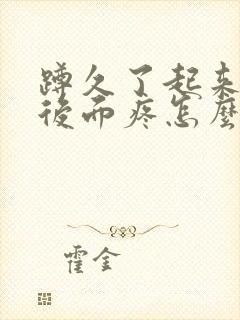 蹲久了起来
後而疼怎麼
霍金